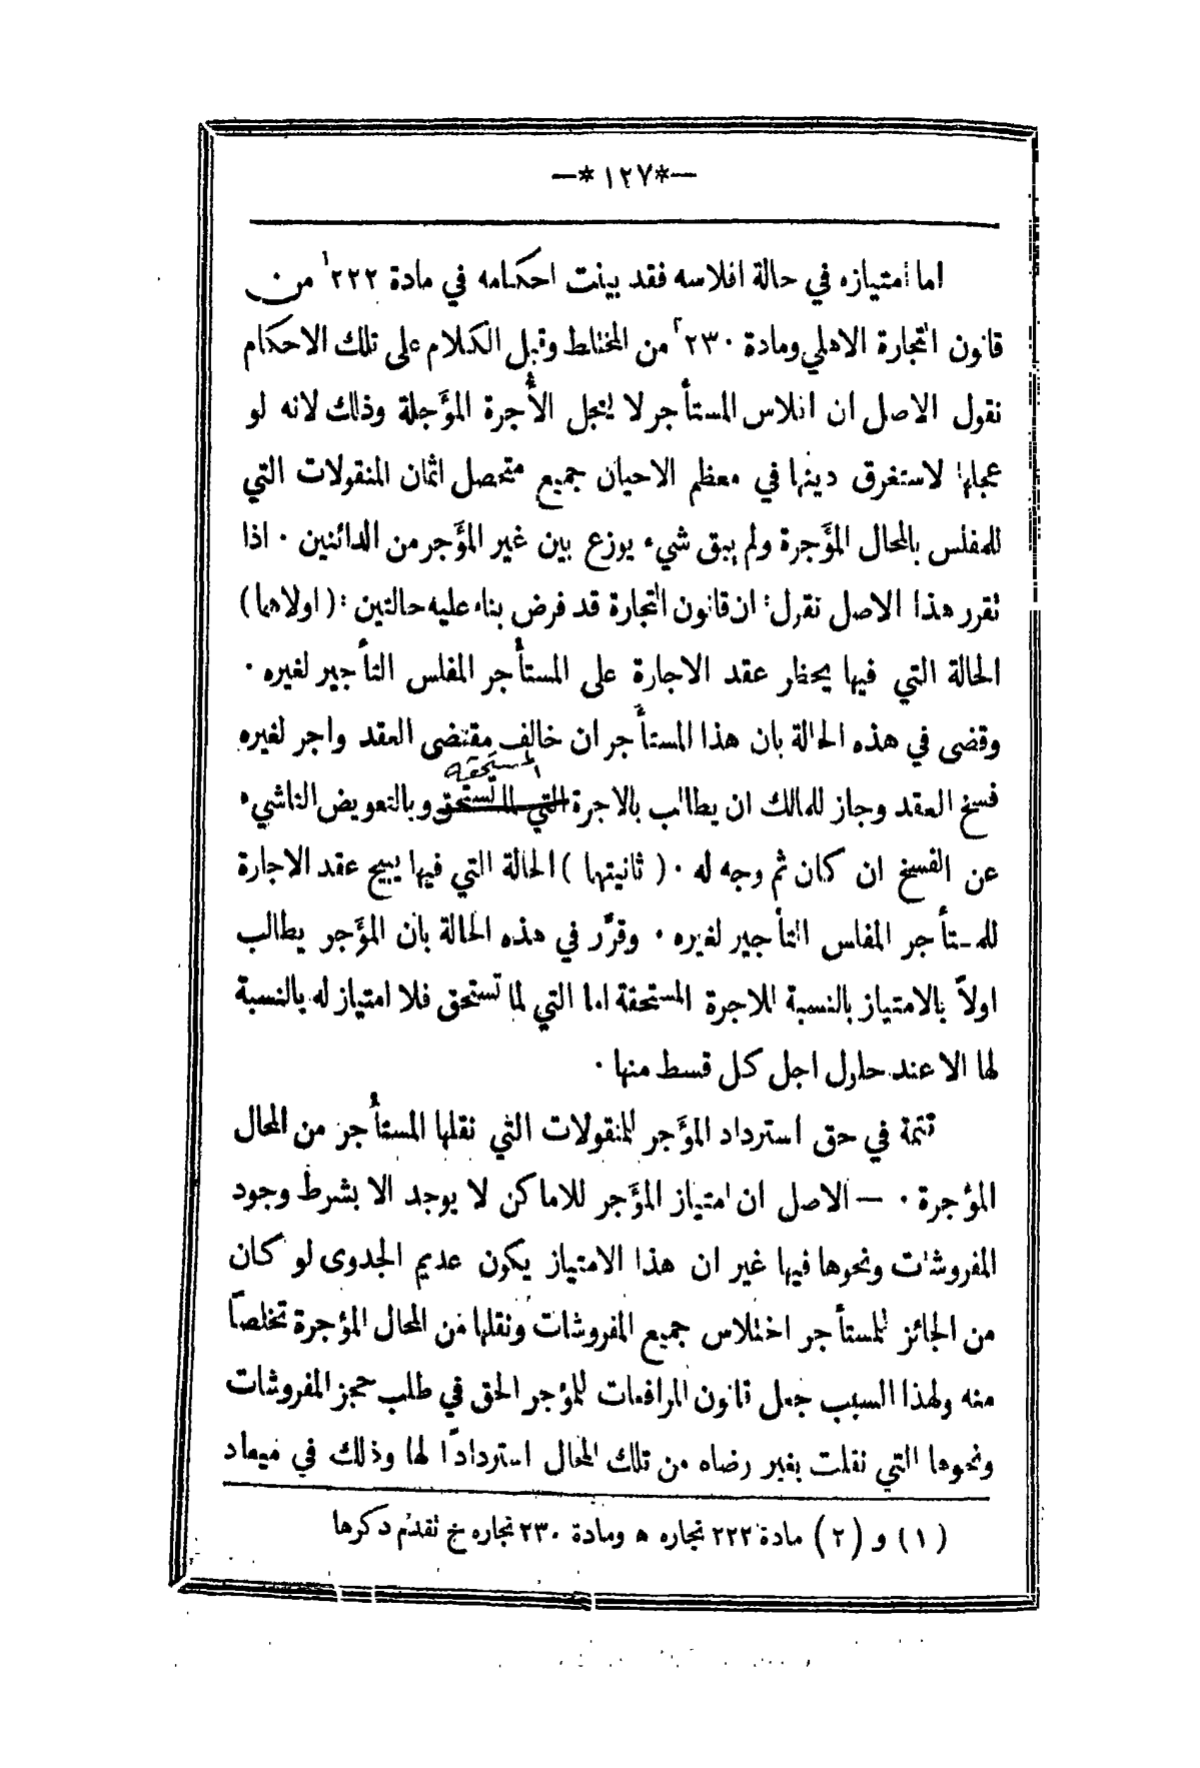 —*١٢٧*—
اما امتيازه في حالة افلاسه فقد بينت احكامه في مادة ٢٢٢ ١ من
قانون التجارة الاهلي ومادة ٢٣٠ ٢ من المختلط وقبل الكلام على تلك الاحكام
نقول الاصل ان افلاس المستأجر لا يحل الأجرة المؤَجلة وذلك لانه لو
عجلها لاستغرق دينها في معظم الاحيان جميع متحصل اثمان المنقولات التي
للمفلس بالمحال المؤَجرة ولم يبق شيء يوزع بين غير المؤَجر من الدائنين . اذا
تقرر هذا الاصل نقول : ان قانون التجارة قد فرض بناء عليه حالتين : ( اولاهما )
الحالة التي فيها يحظر عقد الاجارة على المستأجر المفلس التأجير لغيره .
وقضى في هذه الحالة بان هذا المستأجر ان خالف مقتضى العقد واجر لغيره
المستحقه
فسخ العقد وجاز للمالك ان يطالب بالاجرة التي لما تستحق وبالتعويض الناشيء
عن الفسخ ان كان ثم وجه له . ( ثانيتها ) الحالة التي فيها يبيح عقد الاجارة
للمستأجر المفلس التأجير لغيره . وقرَّر في هذه الحالة بان المؤَجر يطالب
اولاً بالامتياز بالنسبة للاجرة المستحقة اما التي لما تستحق فلا امتياز له بالنسبة
لها الا عند حلول اجل كل قسط منها .
تتمة في حق استرداد المؤَجر للمنقولات التي نقلها المستأجر من المحال
المؤجرة . — الاصل ان امتياز المؤَجر للاماكن لا يوجد الا بشرط وجود
المفروشات ونحوها فيها غير ان هذا الامتياز يكون عديم الجدوى لو كان
من الجائز للمستأجر اختلاس جميع المفروشات ونقلها من المحال المؤجرة تخلصاً
منه ولهذا السبب جعل قانون المرافعات للمؤجر الحق في طلب حجز المفروشات
ونحوها التي نقلت بغير رضاه من تلك المحال استرداداً لها وذلك في ميعاد
( ١ ) و ( ٢ ) مادة ٢٢٢ تجاره ه ومادة ٢٣٠ تجاره خ تقدم ذكرها